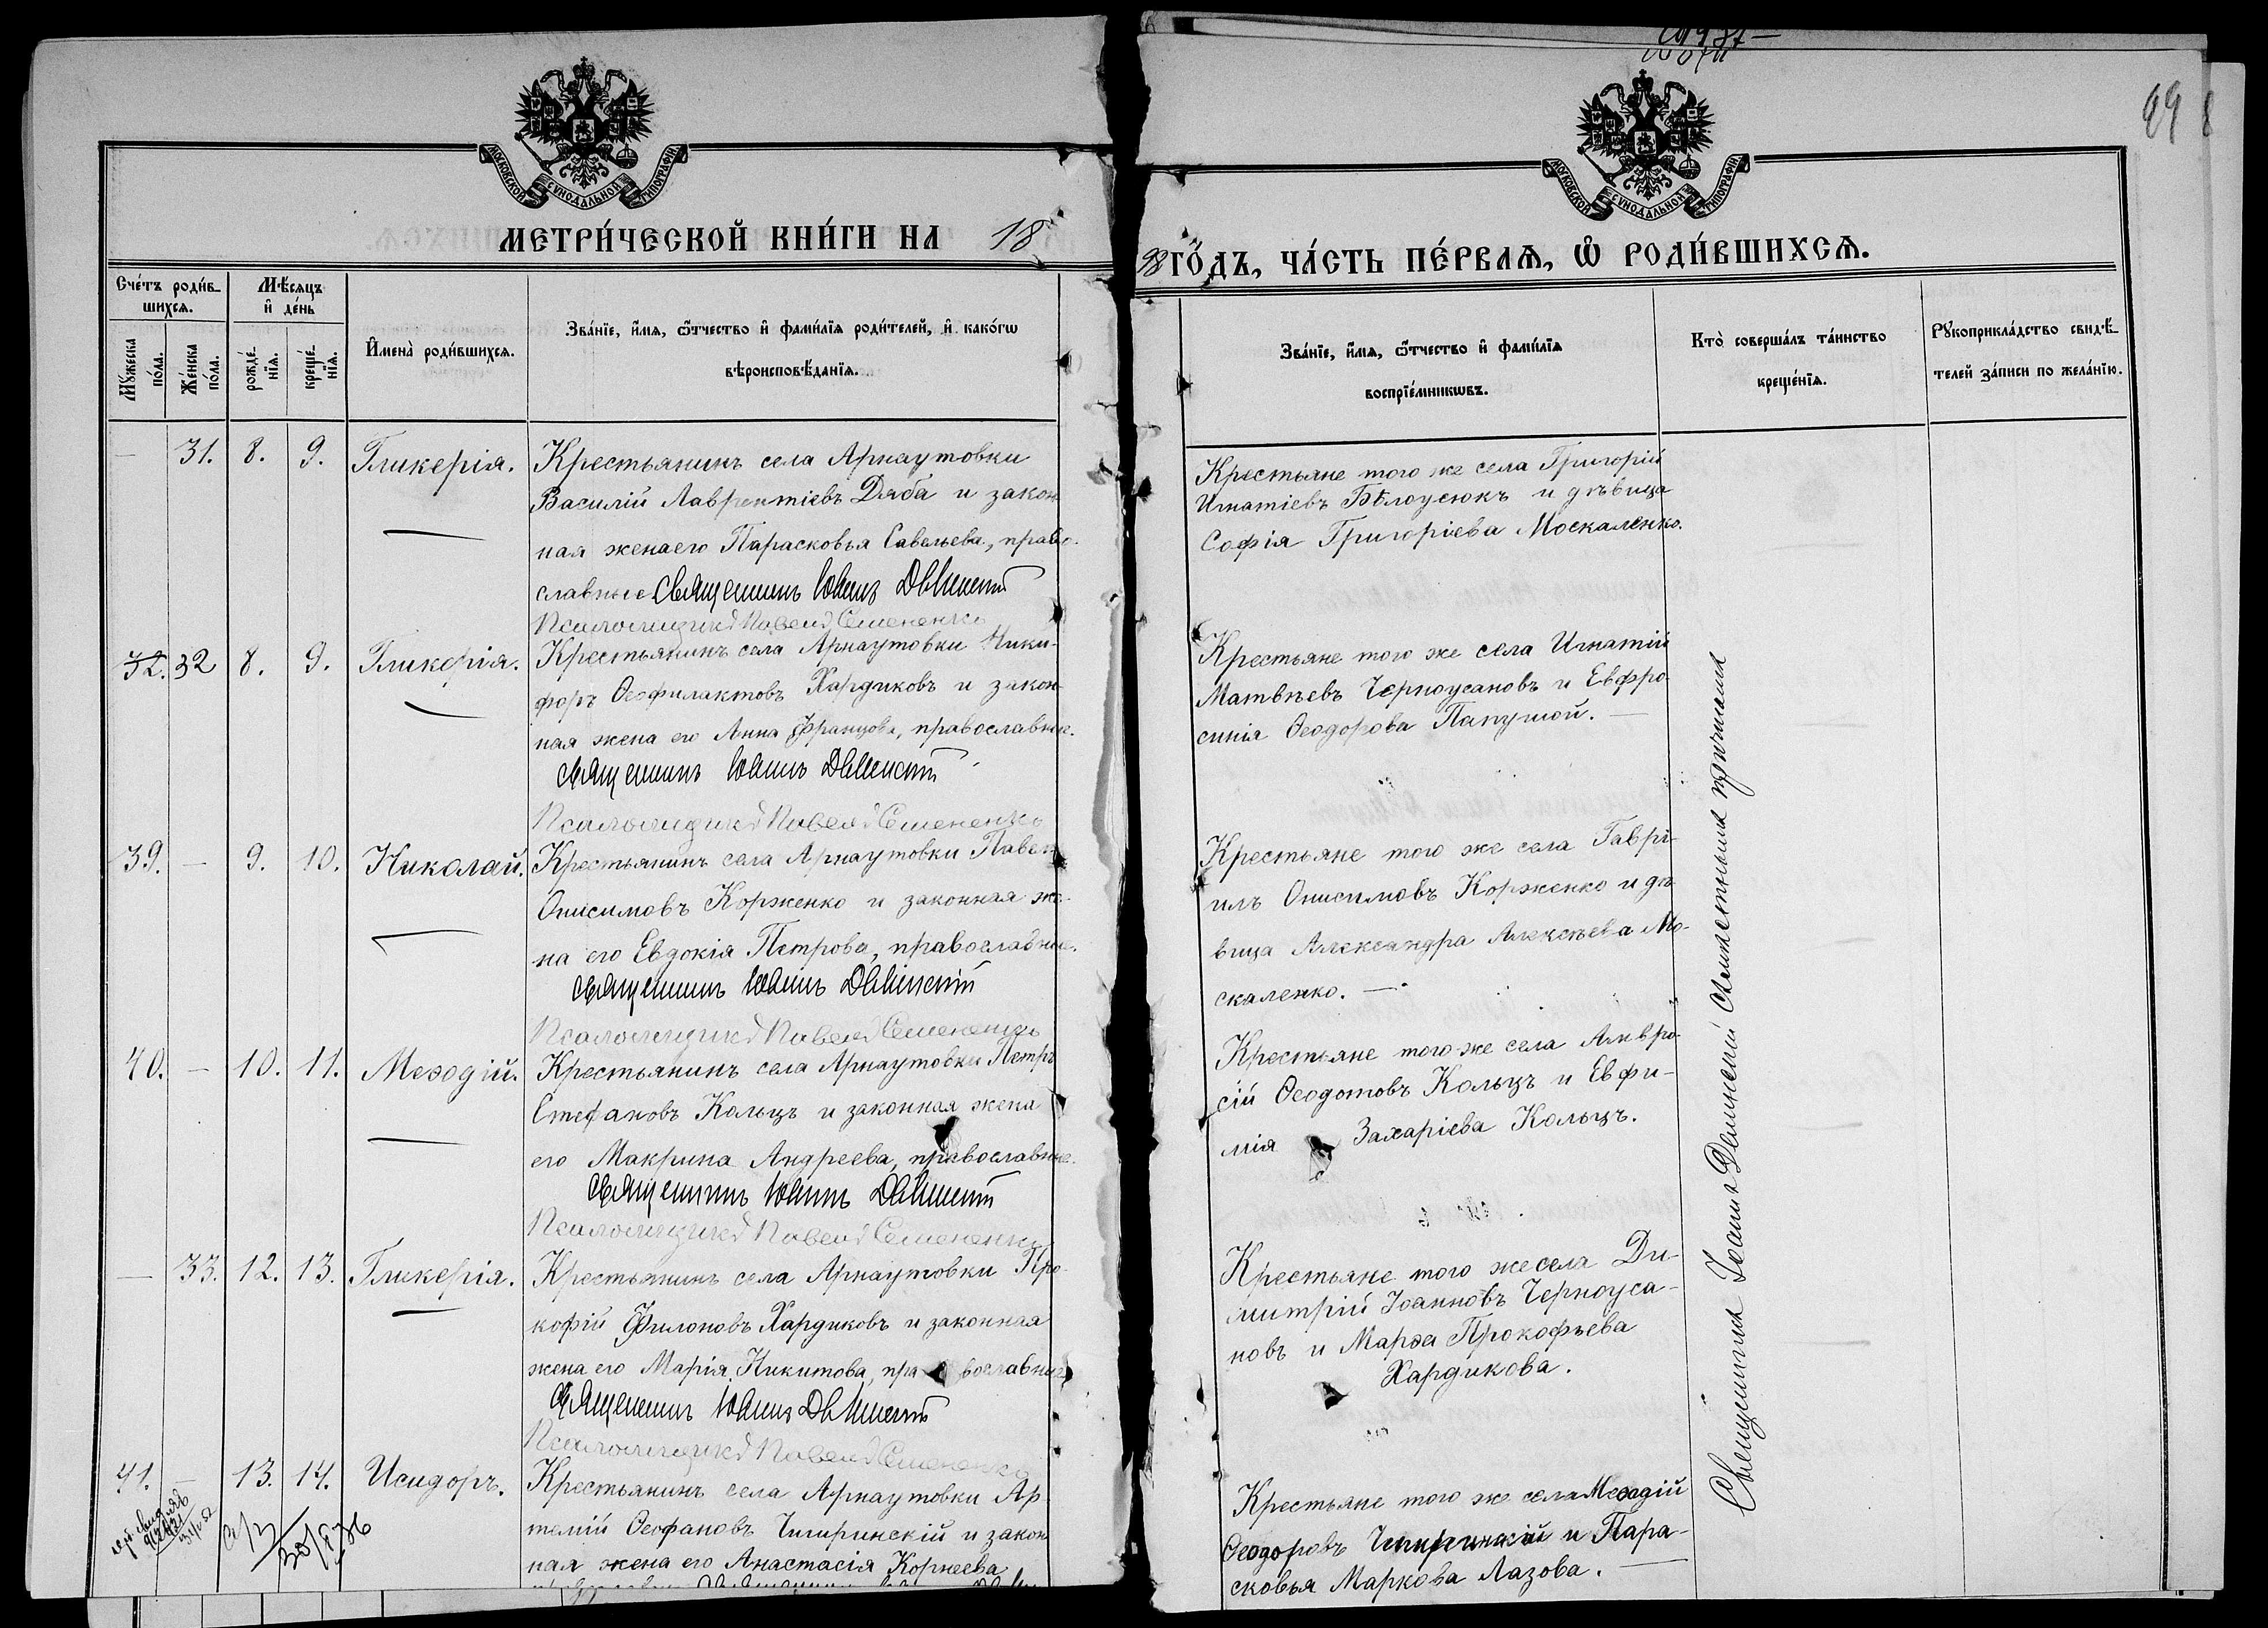 99
МОСКОВСКОЙ СѴНОДАЛЬНОЙ ТИПОГРАФІИ
МОСКОВСКОЙ СѴНОДАЛЬНОЙ ТИПОГРАФІИ
МЕТРИ́ЧЕСКОЙ КНИ́ГИ НА 1898 ГО́ДЪ, ЧА́СТЬ ПЕ́РВАѦ, Ѡ РОДИ́ВШИХСѦ.
Сче́тъ роди́в-
шихсѧ.
Мѣ́сѧцъ
и҆ де́нь
Мꙋ́жеска по́ла.
Же́нска по́ла.
рожде́-нїѧ.
креще́-нїѧ.
И҆мена̀ роди́вшихсѧ.
Зва́нїе, и҆́мѧ, ѻ҆́тчество и҆ фами́лїѧ роди́телей, и҆ како́гѡ
вѣроисповѣ́данїѧ.
Зва́нїе, и҆́мѧ, ѻ҆́тчество и҆ фами́лїѧ
воспрїе́мникѡвъ.
Кто̀ соверша́лъ та́инство
креще́нїѧ.
Рꙋкоприкла́дство свидѣ́-
телей за́писи по жела́нїю.
— 31. 8. 9. Гликерія.
Крестьянинъ села Арнаутовки
Василій Лаврентіевъ Дяба и закон
ная жена его Парасковья Савельева, право-
славные Священникъ Іоаннъ
Псаломщикъ Павелъ Семененко
Крестьяне того же села Григорій
Игнатіевъ Бѣлоусюкъ и дѣвица
Софія Григоріева Москаленко.
32. 32 8. 9. Гликерія.
Крестьянинъ села Арнаутовки Ники-
форъ Ѳеофилактовъ Хардиковъ и закон-
ная жена его Анна Францова, православные.
Священникъ Іоаннъ
Псаломщикъ Павелъ Семененко
Крестьяне того же села Игнатій
Матвѣевъ Черноусановъ и Евфро-
синія Ѳеодорова Папушой. —
39. — 9. 10. Николай.
Крестьянинъ села Арнаутовки Павелъ
Онисимовъ Корженко и законная же-
на его Евдокія Петрова, православные.
Священникъ Іоаннъ
Псаломщикъ Павелъ Семененко
Крестьяне того же села Гаврі-
илъ Онисимовъ Корженко и дѣ-
вица Александра Алексѣева Мо-
скаленко. —
40. — 10. 11. Меѳодій.
Крестьянинъ села Арнаутовки Петръ
Стефановъ Кольцъ и законная жена
его Макрина Андреева, православные.
Священникъ Іоаннъ
Псаломщикъ Павелъ Семененко
Крестьяне того же села Амвро-
сій Ѳеодотовъ Кольцъ и Евфи-
мія Захаріева Кольцъ.
— 33. 12. 13. Гликерія.
Крестьянинъ села Арнаутовки Про-
кофій Филоновъ Хардиковъ и законная
жена его Марія Никитова, православные
Священникъ Іоаннъ
Псаломщикъ Павелъ Семененко
Крестьяне того же села Ди-
митрій Іоанновъ Черноуса-
новъ и Марѳа Прокофьева
Хардикова.
41. — 13. 14. Исидоръ.
Крестьянинъ села Арнаутовки Ар-
темій Ѳеофановъ Чигиринскій и закон
ная жена его Анастасія Корнеева
Крестьяне того же села Меѳодій
Ѳеодоровъ Чигиринскій и Пара-
сковья Маркова Лазова. —
Священникъ Іоаннъ